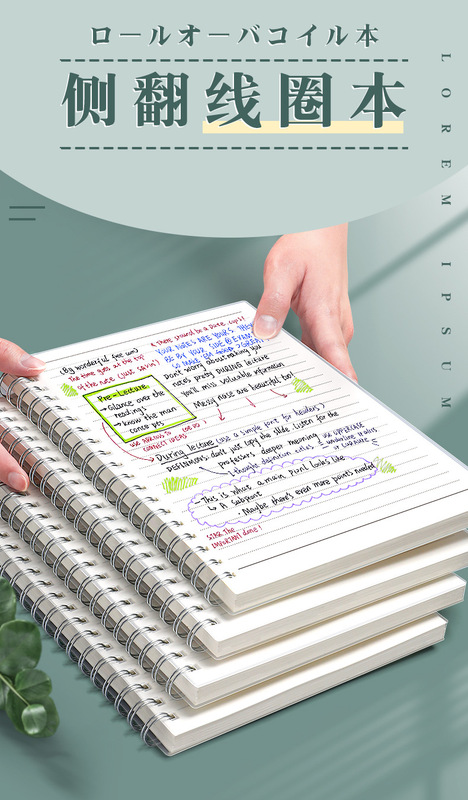 ロールオーバコイル本
侧翻线圈本
LOREM IPSUM
(By wonderful fee un)
& there should be a pure copy!
The time goes at the top
of the note (JUST SAYING)
YOUR NOTES ARE YOURS, THEY
BE BY YOUR SIDE @ EXAM
SO MAKE THE GREAT
Don't worry about making you
notes pretty DURING lecture
You'll miss valuable information
Messy note are beautiful too!
Pre-Lecture
→Glance over the
readings
→know the main
concepts
USE ARROWS TO
CONNECT IDEAS
During lecture (use a simple font for headers)
DEFINITIONS: don't just copy the slide. Listen for the
professors deeper meaning USE UPPERCASE
↳thought definition notes
This is what a main point looks like
↳ A subpoint
• Maybe there's even more points needed
STAR THE
IMPORTANT ONE!